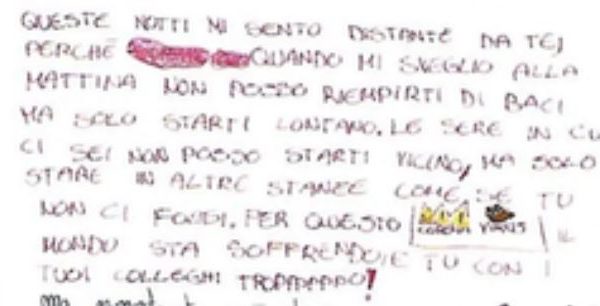 QUESTE NOTTI MI SENTO DISTANTE DA TE,
PERCHÉ QUANDO MI SVEGLIO ALLA
MATTINA NON POSSO RIEMPIRTI DI BACI
MA SOLO STARTI LONTANO. LE SERE IN CU
CI SEI NON POSSO STARTI VICINO, MA SOLO
STARE IN ALTRE STANZE COME SE TU
NON CI FOSSI. PER QUESTO CORONA VIRUS IL
MONDO STA SOFFRENDO E TU CON I
TUOI COLLEGHI TROPPO!